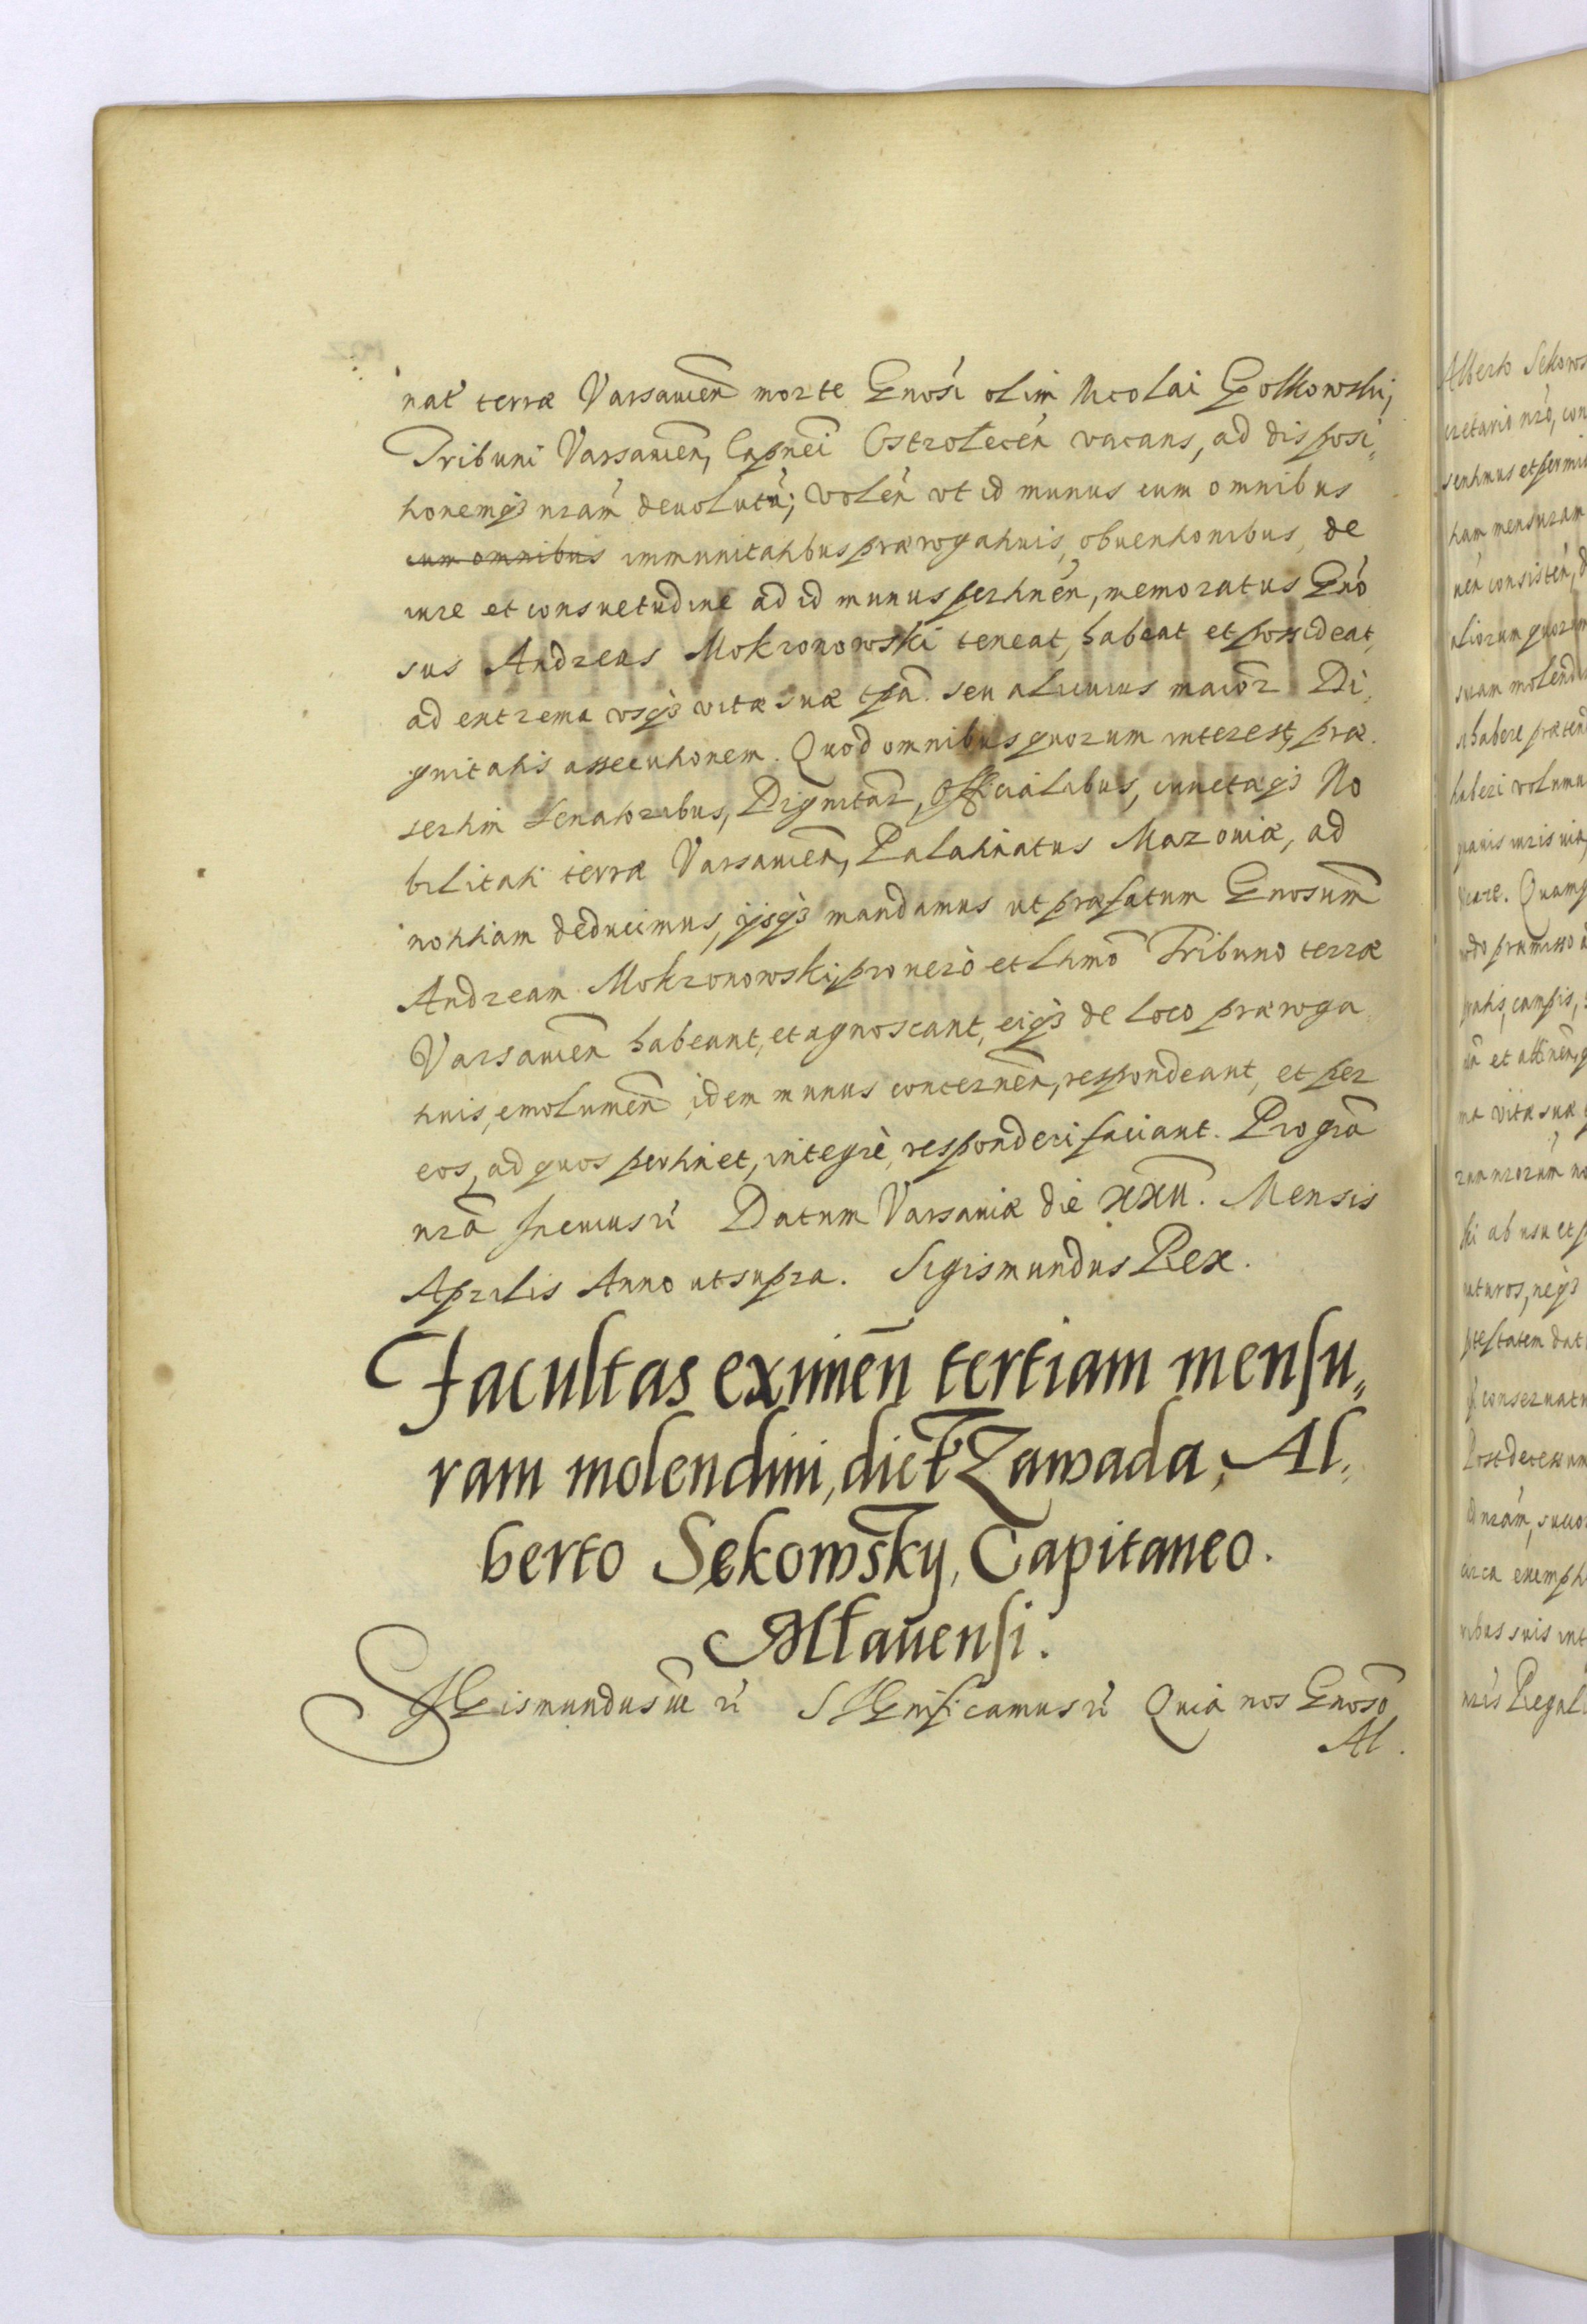 nat terræ Varsauien̄ morte Gnosi olim Nicolai Golkowski,
Tribuni Varsauien̄, Capnei Ostrolecen̄ vacans, ad disposi,
tionemq3 nr̄am deuolutū; volen̄ vt id munus cum omnibus
cum omnibus immunitatibus prærogatiuis, obuentionibus, de
iure et consuetudine ad id munus pertinen̄, memoratus Gnō
sus Andreas Mokronowski teneat, habeat et possideat,
ad extrema vsq3 vitæ suæ tp̄a. seu alicuius maior̄ Di,
gnitatis assecutionem. Quod omnibus quorum interest, præ.
sertim Senatoribus, Dignitar̄, Officialibus, cunctaq3 No
bilitati terræ Varsauien̄, Palatinatus Mazouiæ, ad
notitiam deducimus, ijsq3 mandamus ut præfatum Gnosum̄
Andream Mokronowski, pro uero et ltimō Tribuno terræ
Varsauien̄ habeant, et agnoscant, eiq3 de loco præroga
tiuis, emolumen̄ idem munus concernen̄, respondeant, et per
eos, ad quos pertinet, integrè, responderi faciant. Pro grā
nr̄a
Datum Varsauiæ die xxii. Mensis
Aprilis Anno ut supra. Sigismundus Rex.
Facultas eximen̄ tertiam mensu,,
ram molendini, dict Zawada, Al,,
berto Sękowsky, Capitaneo.
Mławensi.
SIGismundus iii rc̄ SIGnificamus rc̄ Quia nos Gnosō
Al.
Alberto Sekows
cretario nrō, con
sentimus et permit
tiam mensuram
nen̄ consisten̄, d
aliorum quorum
suam molend
habere præten
haberi volumu
quauis iuris uia
care. Quamq
modo præmisso
pratis, campis,
et attinen̄,
ma vitæ suæ
rum nr̄orum no
ski ab usu et p
aturos, neq3
ptestatem dat
conseruatu
Post decessum
nr̄am, succo
circa exempti
ribus suis int
nr̄is Regali